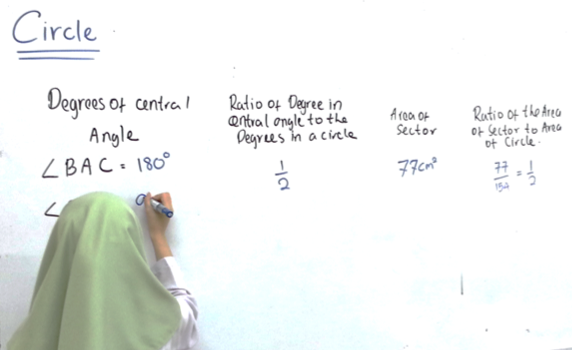 Circle
Degrees of central
Angle
Ratio of Degree in
central angle to the
Degrees in a circle
Area of
Sector
Ratio of the Area
of Sector to Area
of Circle.
∠BAC = 180°
1/2
77cm²
77/154 = 1/2
∠